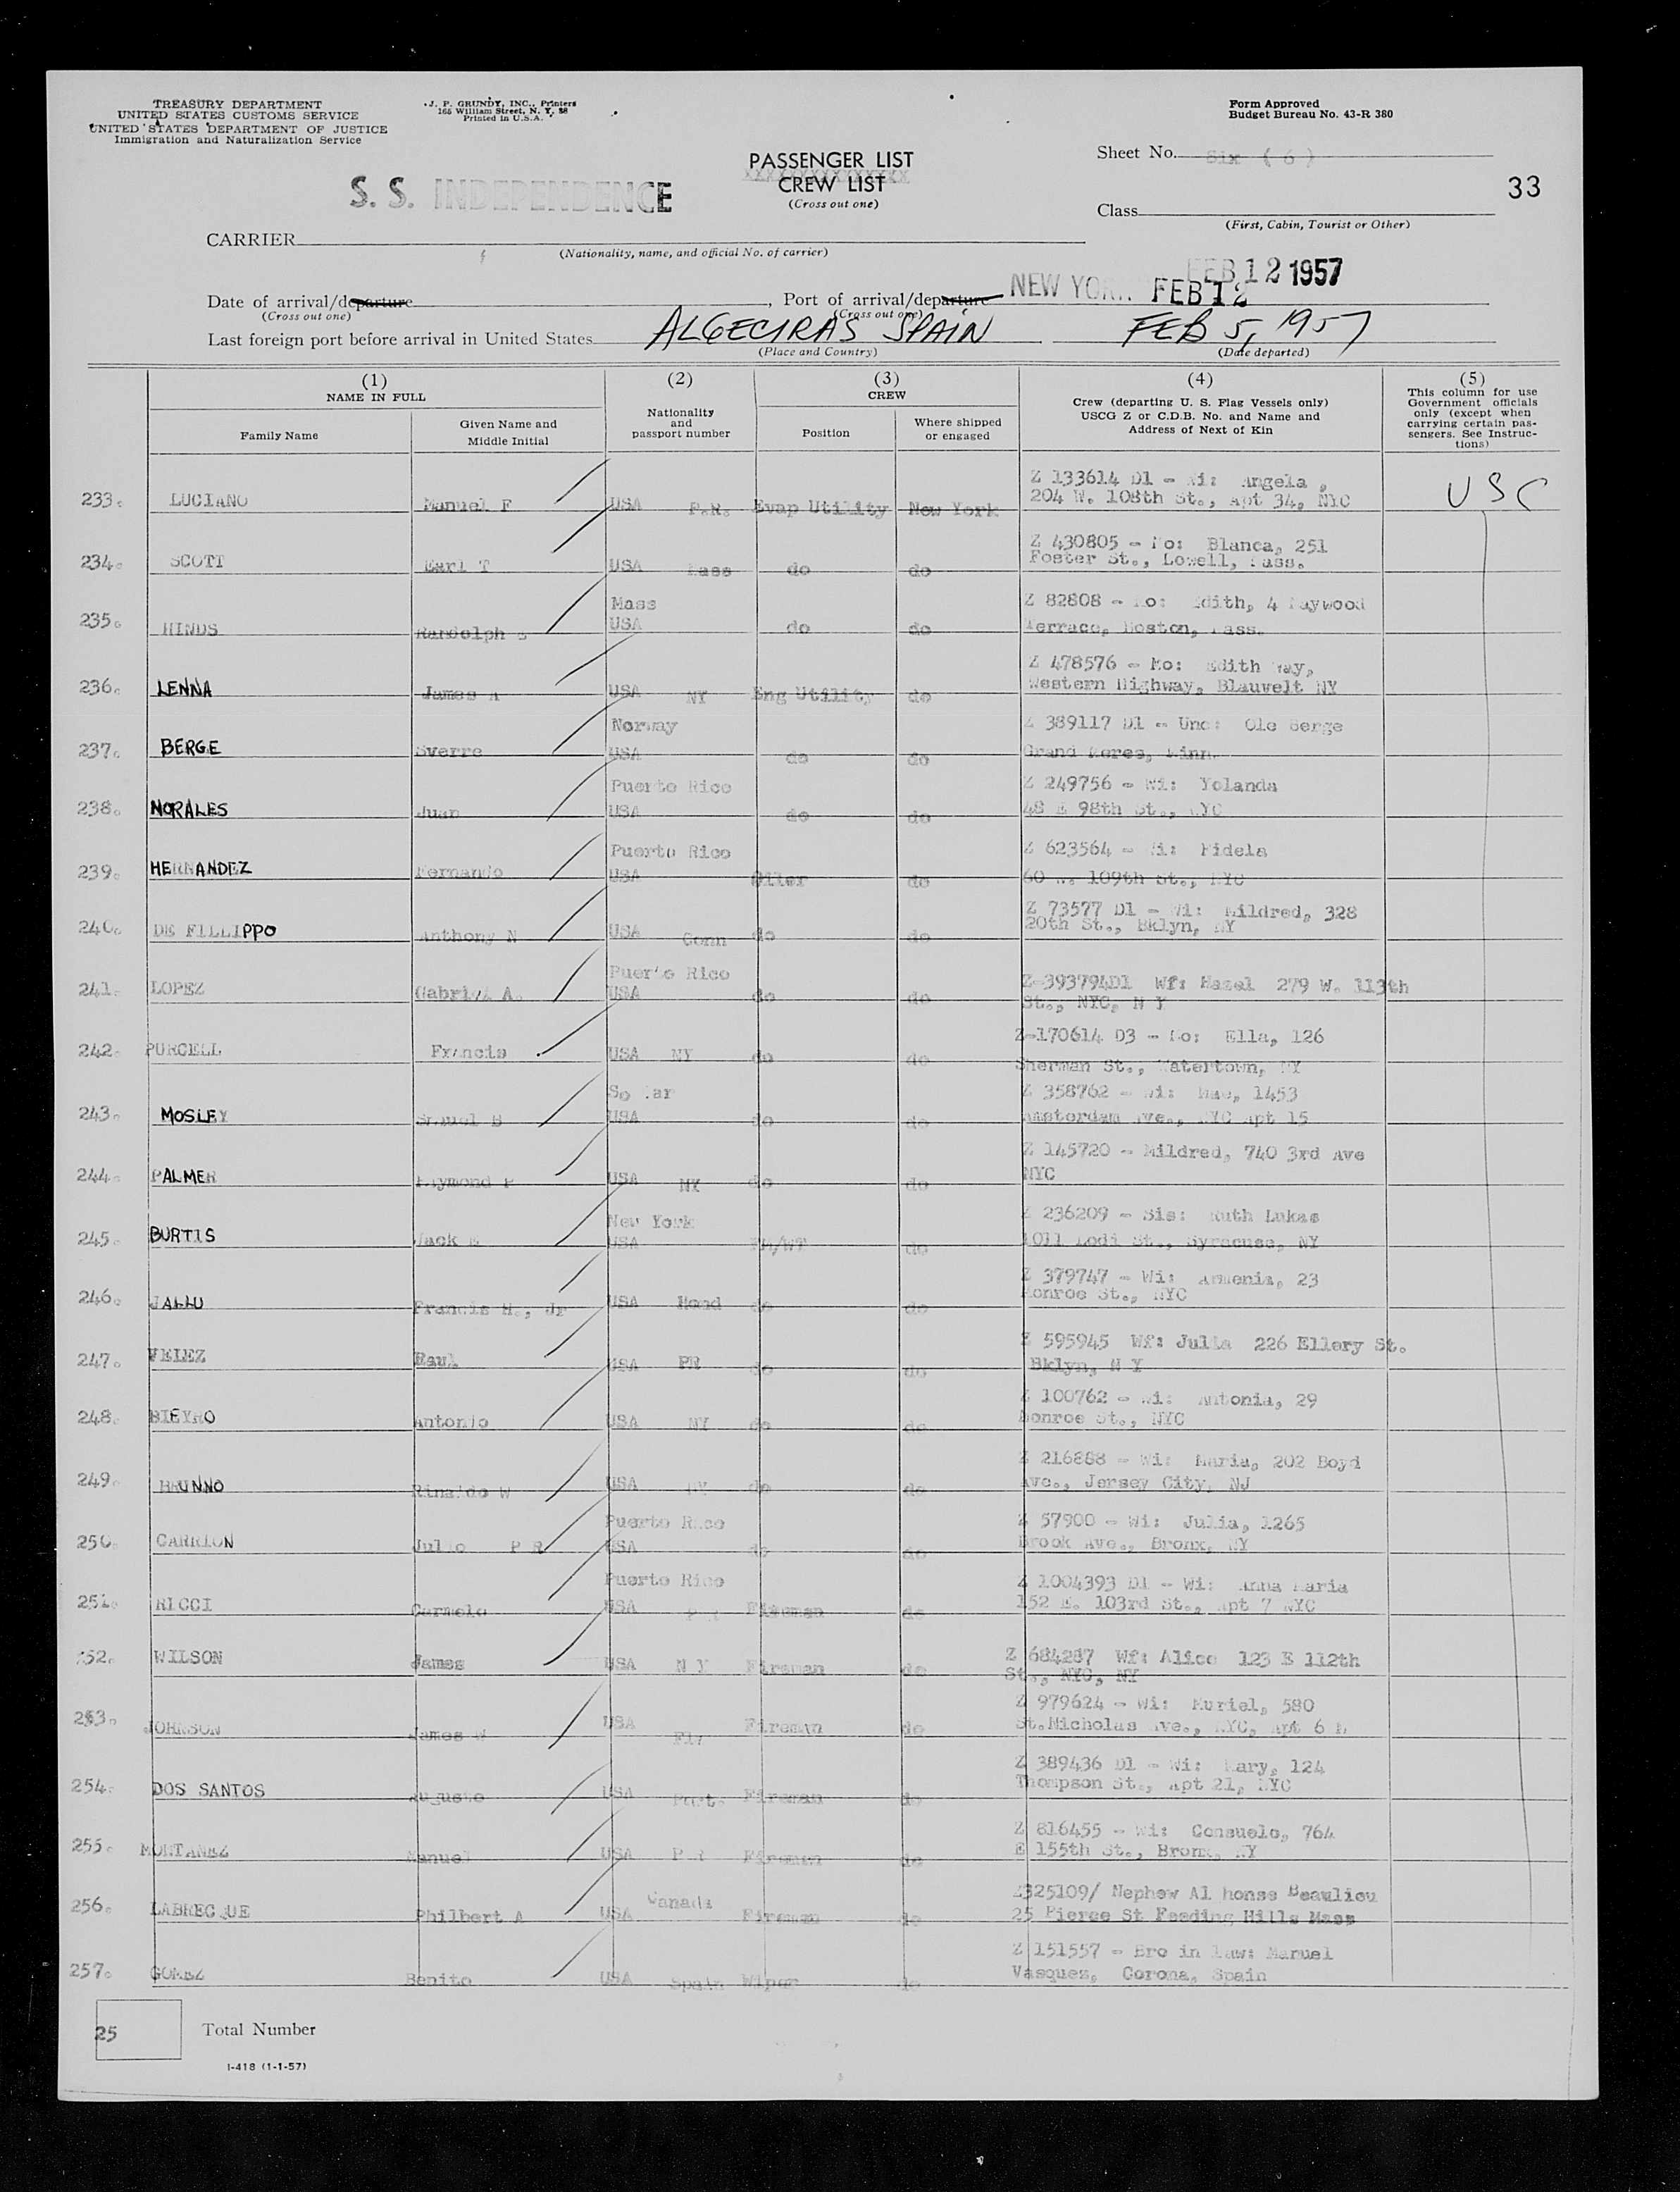 TREASURY DEPARTMENT
UNITED STATES CUSTOMS SERVICE
UNITED STATES DEPARTMENT OF JUSTICE
Immigration and Naturalization Service
J. P. GRUNDY, INC., Printers
165 William Street, N. Y. 38
Printed in U.S.A.
Form Approved
Budget Bureau No. 43-R 380
PASSENGER LIST
CREW LIST
(Cross out one)
Sheet No. Six (6)
33
S. S. INDEPENDENCE
Class
(First, Cabin, Tourist or Other)
CARRIER
(Nationality, name, and official No. of carrier)
FEB 12 1957
Date of arrival/departure , Port of arrival/departure NEW YORK FEB 12
(Cross out one) (Cross out one)
Last foreign port before arrival in United States ALGECIRAS SPAIN FEB 5, 1957
(Place and Country) (Date departed)
(1) NAME IN FULL
Family Name
Given Name and Middle Initial
(2)
Nationality and passport number
(3) CREW
Position
Where shipped or engaged
(4)
Crew (departing U. S. Flag Vessels only)
USCG Z or C.D.B. No. and Name and
Address of Next of Kin
(5)
This column for use
Government officials
only (except when
carrying certain pas-
sengers. See Instruc-
tions)
233. LUCIANO Manuel F USA P.R. Evap Utility New York Z 133614 D1 - Wi: Angela, USC
204 W. 108th St., Apt 34, NYC
234. SCOTT Earl T USA Mass do do Z 430805 - Mo: Blanca, 251
Foster St., Lowell, Mass.
235. HINDS Randolph Mass USA do do Z 82808 - Mo: Edith, 4 Maywood
Terrace, Boston, Mass.
236. LENNA James A USA NY Eng Utility do Z 478576 - Mo: Edith May,
Western Highway, Blauvelt NY
237. BERGE Sverre Norway USA do do Z 389117 D1 - Unc: Ole Berge
Grand Meres, Minn.
238. MORALES Juan Puerto Rico USA do do Z 249756 - Wi: Yolanda
48 E 98th St., NYC
239. HERNANDEZ Fernando Puerto Rico USA Oiler do Z 623564 - Wi: Fidela
60 W. 109th St., NYC
240. DE FILLIPPO Anthony N USA Conn do do Z 73577 D1 - Wi: Mildred, 328
20th St., Bklyn, NY
241. LOPEZ Gabriel A. Puerto Rico USA do do Z-393794D1 Wf: Hazel 279 W. 113th
St., NYC, N Y
242. PURCELL Francis USA NY do do Z-170614 D3 - Mo: Ella, 126
Sherman St., Watertown, NY
243. MOSLEY Samuel B So Car USA do do Z 358762 - Wi: Mae, 1453
Amsterdam Ave., NYC Apt 15
244. PALMER Raymond USA NY do do Z 145720 - Mildred, 740 3rd Ave
NYC
245. BURTIS Jack New York USA FM/WT do Z 236209 - Sis: Ruth Lukas
1011 Lodi St., Syracuse, NY
246. JALLU Francis H., Jr USA Hond do do Z 379747 - Wi: Armenia, 23
Monroe St., NYC
247. VELEZ Raul USA PR do do Z 595945 Wf: Julia 226 Ellery St.
Bklyn, N Y
248. BIEYRO Antonio USA NY do do Z 100762 - Wi: Antonia, 29
Monroe St., NYC
249. BRUNNO Rinaldo W USA NY do do Z 216888 - Wi: Maria, 202 Boyd
Ave., Jersey City, NJ
250. CARRION Julio P R Puerto Rico USA do do Z 57900 - Wi: Julia, 1265
Brook Ave., Bronx, NY
251. RICCI Carmelo Puerto Rico USA P R Fireman do Z 1004393 D1 - Wi: Anna Maria
152 E. 103rd St., Apt 7 NYC
252. WILSON James USA N Y Fireman do Z 684287 Wf: Alice 123 E 112th
St., NYC, NY
253. JOHNSON James W USA Fla Fireman do Z 979624 - Wi: Muriel, 580
St.Nicholas Ave., NYC, Apt 6
254. DOS SANTOS Augusto USA Port. Fireman do Z 389436 D1 - Wi: Mary, 124
Thompson St., Apt 21, NYC
255. MONTANEZ Manuel USA P R Fireman do Z 816455 - Wi: Consuelo, 764
E 155th St., Bronx, NY
256. LABRECQUE Philbert A USA Canada Fireman do Z325109/ Nephew Al honse Beaulieu
25 Pierce St Feeding Hills Mass
257. GOMEZ Benito USA Spain Wiper do Z 151557 - Bro in law: Manuel
Vasques, Corona, Spain
25 Total Number
I-418 (1-1-57)